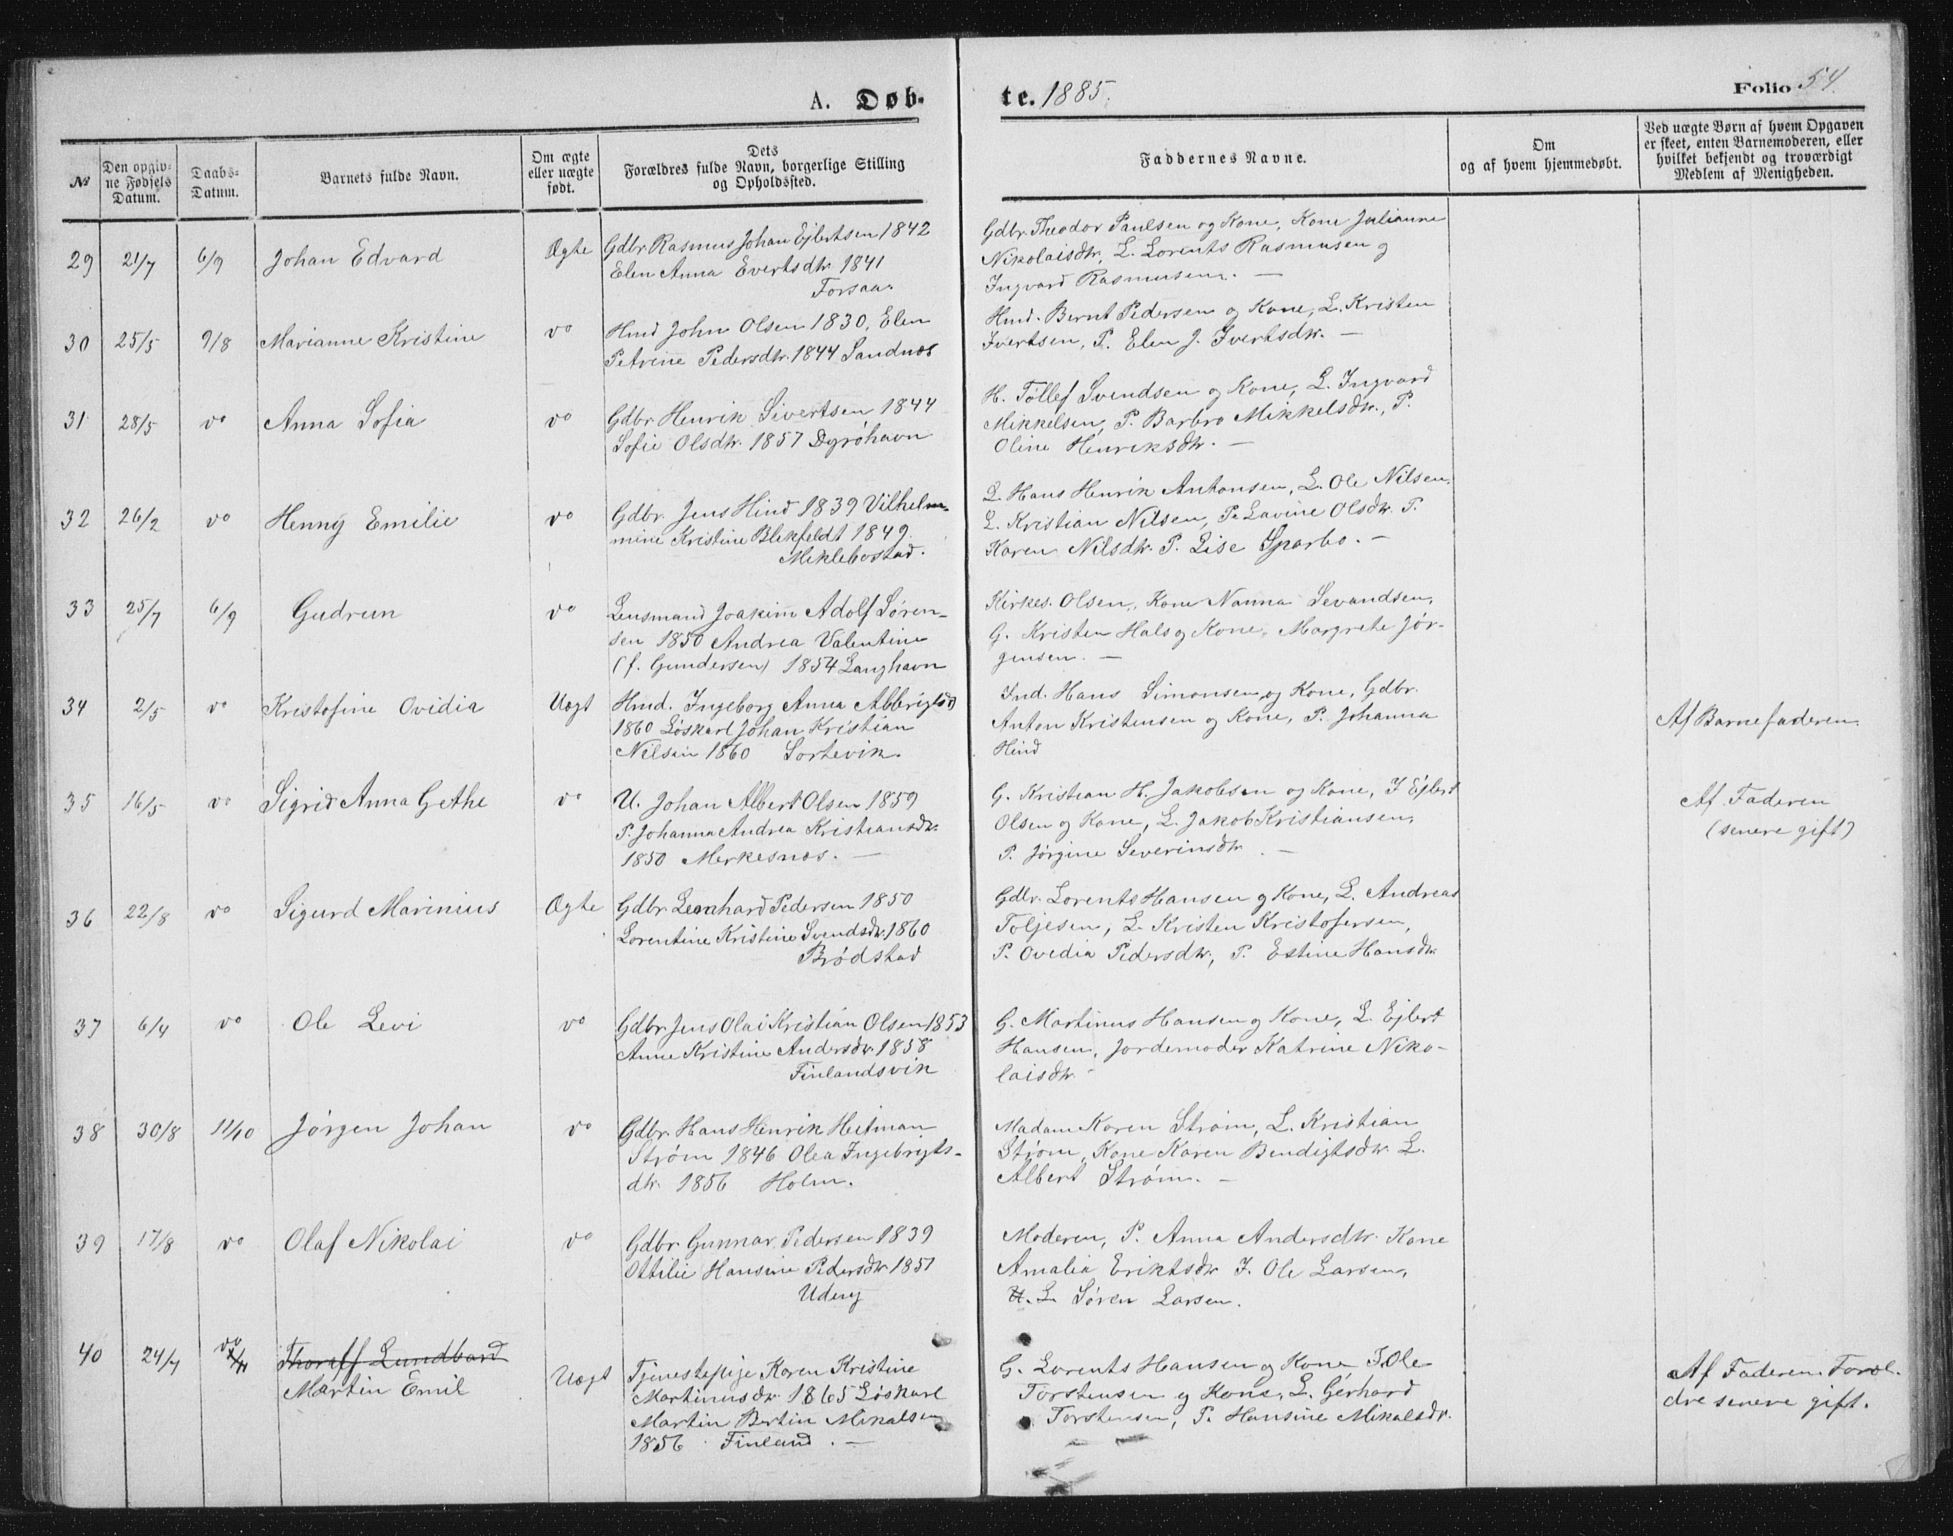 A. Døb-
te. 1885.
Folio 54.
№
Den opgiv-
ne Fødsels
Datum.
Daabs-
Datum.
Barnets fulde Navn.
Om ægte
eller uægte
født.
Dets
Forældres fulde Navn, borgerlige Stilling
og Opholdssted.
Faddernes Navne.
Om
og af hvem hjemmedøbt.
Ved uægte Børn af hvem Opgaven
er skeet, enten Barnemoderen, eller
hvilket bekjendt og troværdigt
Medlem af Menigheden.
29 21/7 6/9 Johan Edvard Ægte
Gdbr Rasmus Johan Ejlertsen 1842
Elen Anna Evertsdtr. 1841
Forsaa.
Gdbr Theodor Paulsen og Kone, Kone Julianne
Nikolaisdtr, L. Lorents Rasmusen og
Ingvard Rasmusen. —
30 25/5 9/8 Marianne Kristine vo
Hmd John Olsen 1830, Elen
Petrine Pedersdtr. 1844 Sandnes
Hmd. Bernt Pedersen og Kone, L. Kristen
Ivertsen, P. Elen J. Ivertsdtr. —
31 28/5 vo Anna Sofia vo
Gdbr Henrik Sivertsen 1844
Sofie Olsdtr. 1857 Dyrøhavn
H. Tollef Svendsen og Kone, L. Ingvard
Mikkelsen, P. Barbro Mikkelsdtr., P.
Oline Henriksdtr. —
32 26/2 vo Henny Emilie vo
Gdbr. Jens Hind 1839 Vilhelm-
mine Kristine Blikfeldt 1849.
Miklebostad.
L. Hans Henrik Antonsen, L. Ole Nilsen,
L. Kristian Nilsen, P. Lavine Olsdtr. P.
Karen Nilsdtr. P. Lise Sparbo. —
33 25/7 6/9 Gudrun vo
Lensmand Joakim Adolf Søren-
sen 1850 Andrea Valentine
(f. Gundersen) 1854 Langhavn
Kirkes. Olsen, Kone Nanna Sevandsen,
G. Kristen Hals og Kone, Margrete Jør-
gensen. —
34 2/5 vo Kristofine Ovidia Uægt
Hmd. Ingeborg Anna Albrigtsd
1860 Løskarl Johan Kristian
Nilsen 1860 Sortevik.
Ind. Hans Simonsen og Kone, Gdbr.
Anton Kristensen og Kone, P. Johanna
Hind
Af Barnefaderen.
35 16/5 vo Sigrid Anna Gethe vo
U. Johan Albert Olsen 1859
P. Johanna Andrea Kristiansdtr.
1850 Merkesnes. —
G. Kristian H. Jakobsen og Kone, I Ejlert
Olsen og Kone, L. Jakob Kristiansen,
P. Jørgine Severinsdtr. —
Af Faderen
(senere gift)
36 22/8 vo Sigurd Marinius Ægte
Gdbr Leonhard Pedersen 1850
Lorentine Kristine Svendsdtr. 1860
Brødstad
Gdbr. Lorents Hansen og Kone, L. Andreas
Toljesen, L. Kristen Kristofersen,
P. Ovidia Pedersdtr, P. Estine Hansdtr
37 6/4 vo Ole Levi vo
Gdbr Jens Olai Kristian Olsen 1853
Anne Kristine Andersdtr. 1858
Finlandsvik
G. Martinus Hansen og Kone, L. Ejlert
Hansen, Jordemoder Katrine Niko-
laisdtr.
38 30/8 11/10 Jørgen Johan vo
Gdbr. Hans Henrik Heitman
Strøm 1846 Olea Ingebrigts-
dtr. 1856 Holm.
Madam Karen Strøm, L. Kristian
Strøm, Kone Karen Bendigtsdtr. L.
Albert Strøm. —
39 17/8 vo Olaf Nikolai vo
Gdbr. Gunnar Pedersen 1839
Ottilie Hansine Pedersdtr 1851
Udeng
Moderen, P. Anna Andersdtr. Kone
Amalia Eriktsdtr I. Ole Larsen,
U. L. Søren Larsen.
40 24/7 vo Thoralf Lundbard
Martin Emil Uægt
Tjenestepige Karen Kristine
Martinusdtr 1865 Løskarl
Martin Bertin Mikalsen
1856. Finland. —
G. Lorents Hansen og Kone I. Ole
Torstensen og Kone, L. Gerhard
Torstensen, P. Hansine Mikalsdtr.
Af Faderen. Foræl-
dre senere gift.